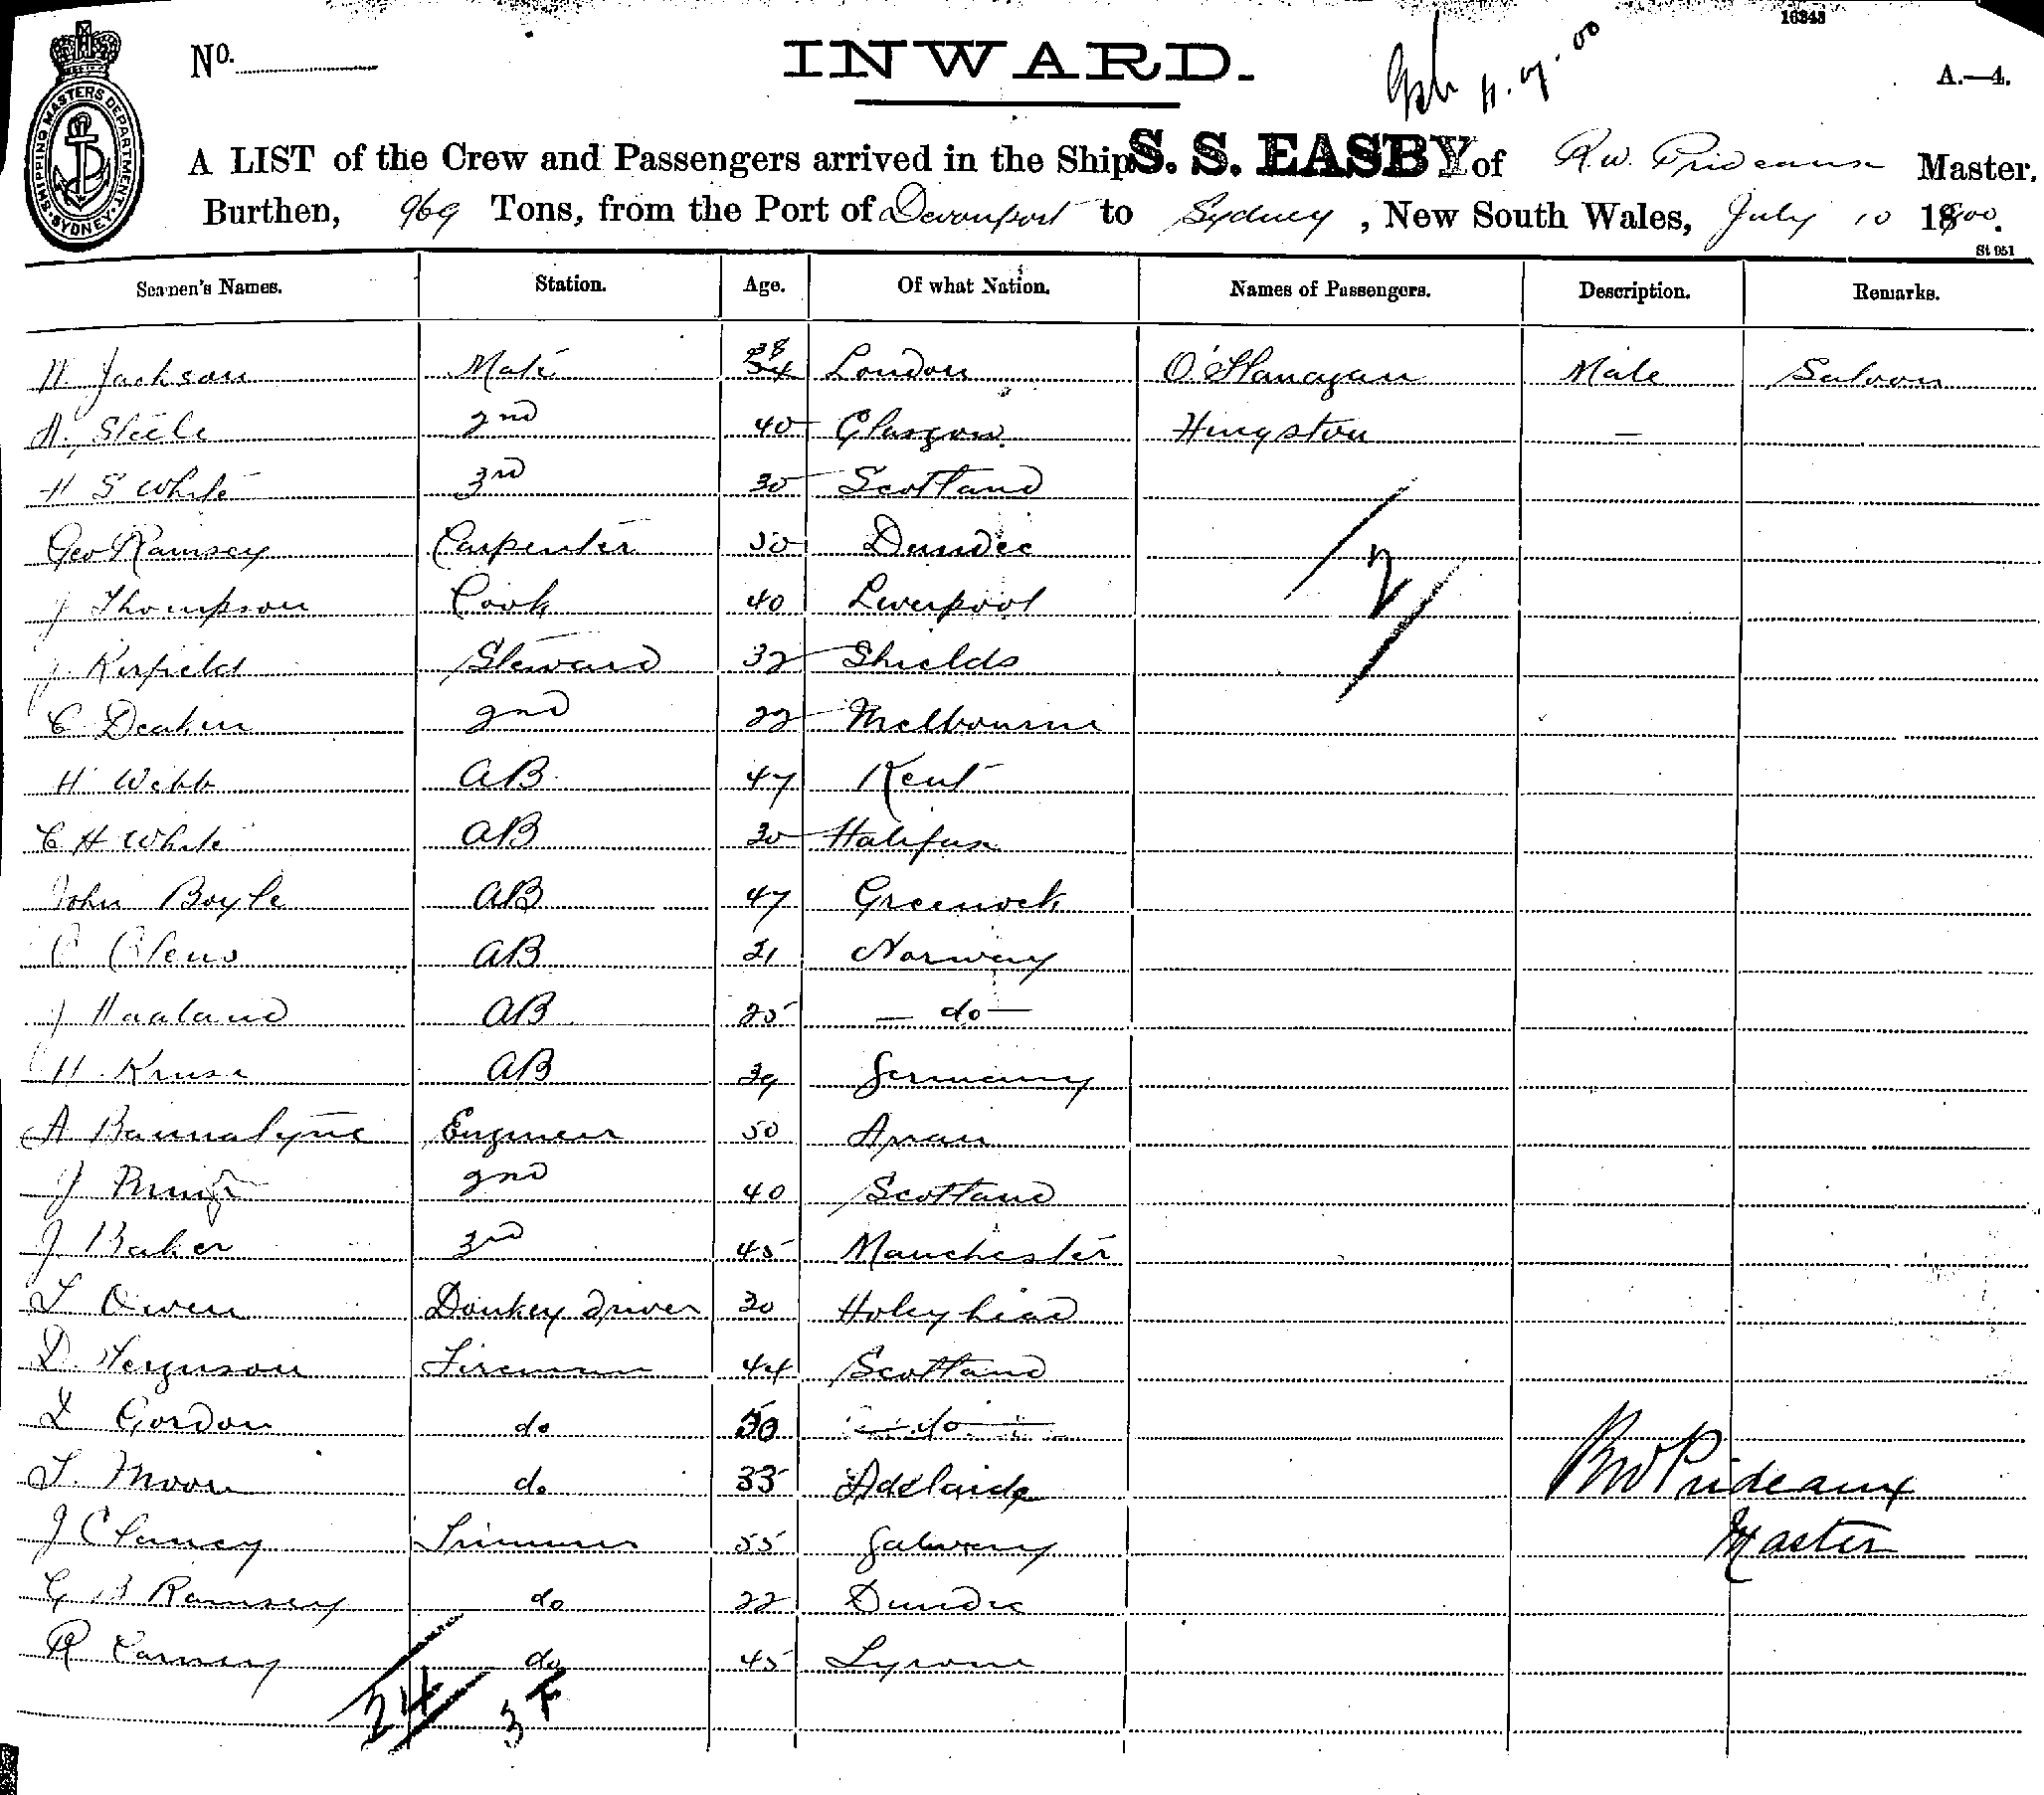 16343
No.
INWARD.
A.—4.
SHIPPING MASTERS DEPARTMENT. SYDNEY.
A LIST of the Crew and Passengers arrived in the Ship S. S. EASBY of R. W. Prideaux Master.
Burthen, 969 Tons, from the Port of Devonport to Sydney, New South Wales, July 10 1900.
St 951
Seamen's Names. Station. Age. Of what Nation. Names of Passengers. Description. Remarks.
Jackson Mate 38 34 London O'Flanagan Male Saloon
Steele 2nd 40 Glasgow Hingston —
H S White 3rd 30 Scotland
Geo Ramsey Carpenter 50 Dundee
J Thompson Cook 40 Liverpool
2
J Kirfield Steward 32 Shields
C Deakin 2nd 22 Melbourne
H Webb AB 47 Kent
C H White AB 30 Halifax
John Boyle AB 47 Greenock
Olens AB 21 Norway
J Haaland AB 25 — do —
H Kruse AB 39 Germany
A Bannatyne Engineer 50 Arran
J 2nd 40 Scotland
J. Baker 3rd 45 Manchester
Owen Donkey driver 30 Holeyhead
D. Ferguson Fireman 44 Scotland
Gordon do 50 — do —
Moon do 33 Adelaide
RW Prideaux
J Clancy Trimmer 55 Galway
Master
G B Ramsey do 22 Dundee
R Carney do 45 Tyrone
24 3 F